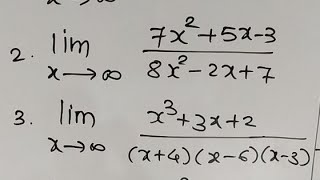 x→∞
2. lim x→∞ (7x²+5x-3)/(8x²-2x+7)
3. lim x→∞ (x³+3x+2)/((x+4)(x-6)(x-3))